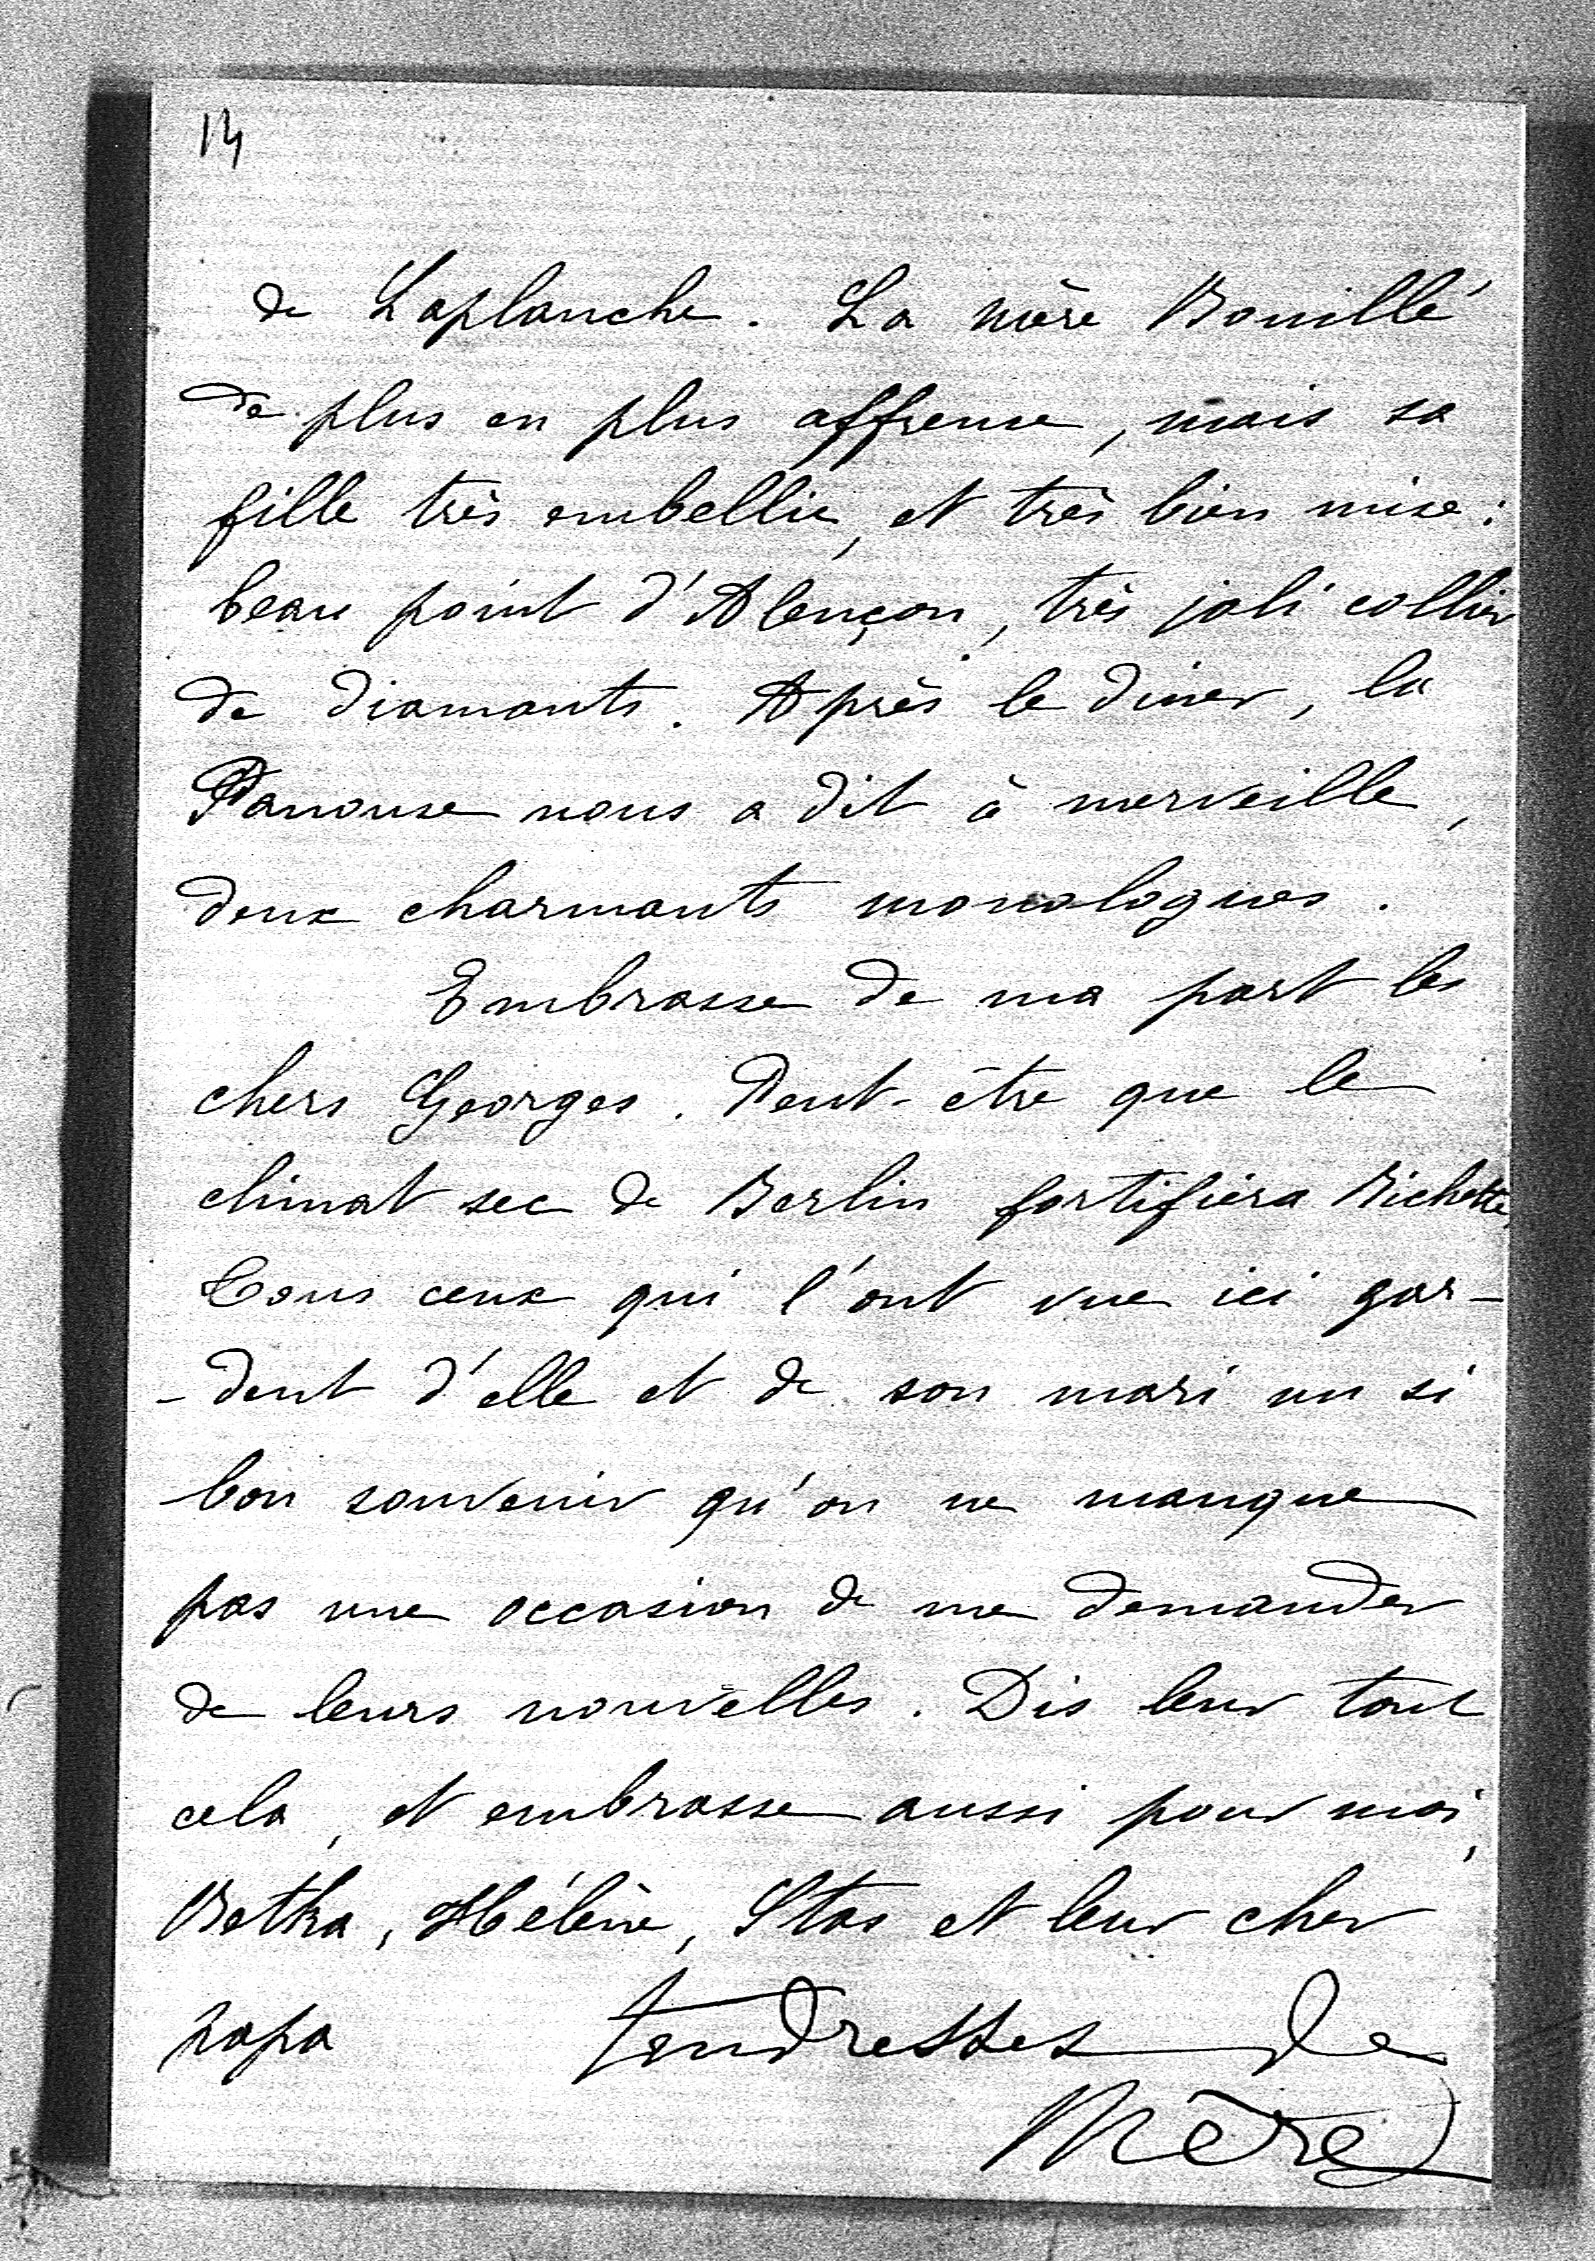 14
de Laplanche. La mère Bouillé
de plus en plus affreuse, mais sa
fille très embellie, et très bien mise :
beau point d'Alençon, très joli collier
de diamants. Après le diner, la
Panouse nous a dit à merveille,
deux charmants monologues.
Embrasse de ma part les
chers Georges. Peut-être que le
climat sec de Berlin fortifiera Bichette,
Tous ceux qui l'ont vue ici gar-
-dent d'elle et de son mari un si
bon souvenir qu'on ne manque
pas une occasion de me demander
de leurs nouvelles. Dis leur tout
cela, et embrasse aussi pour moi,
Betka, Hélène, Stas et leur cher
papa Tendresses de
Mère